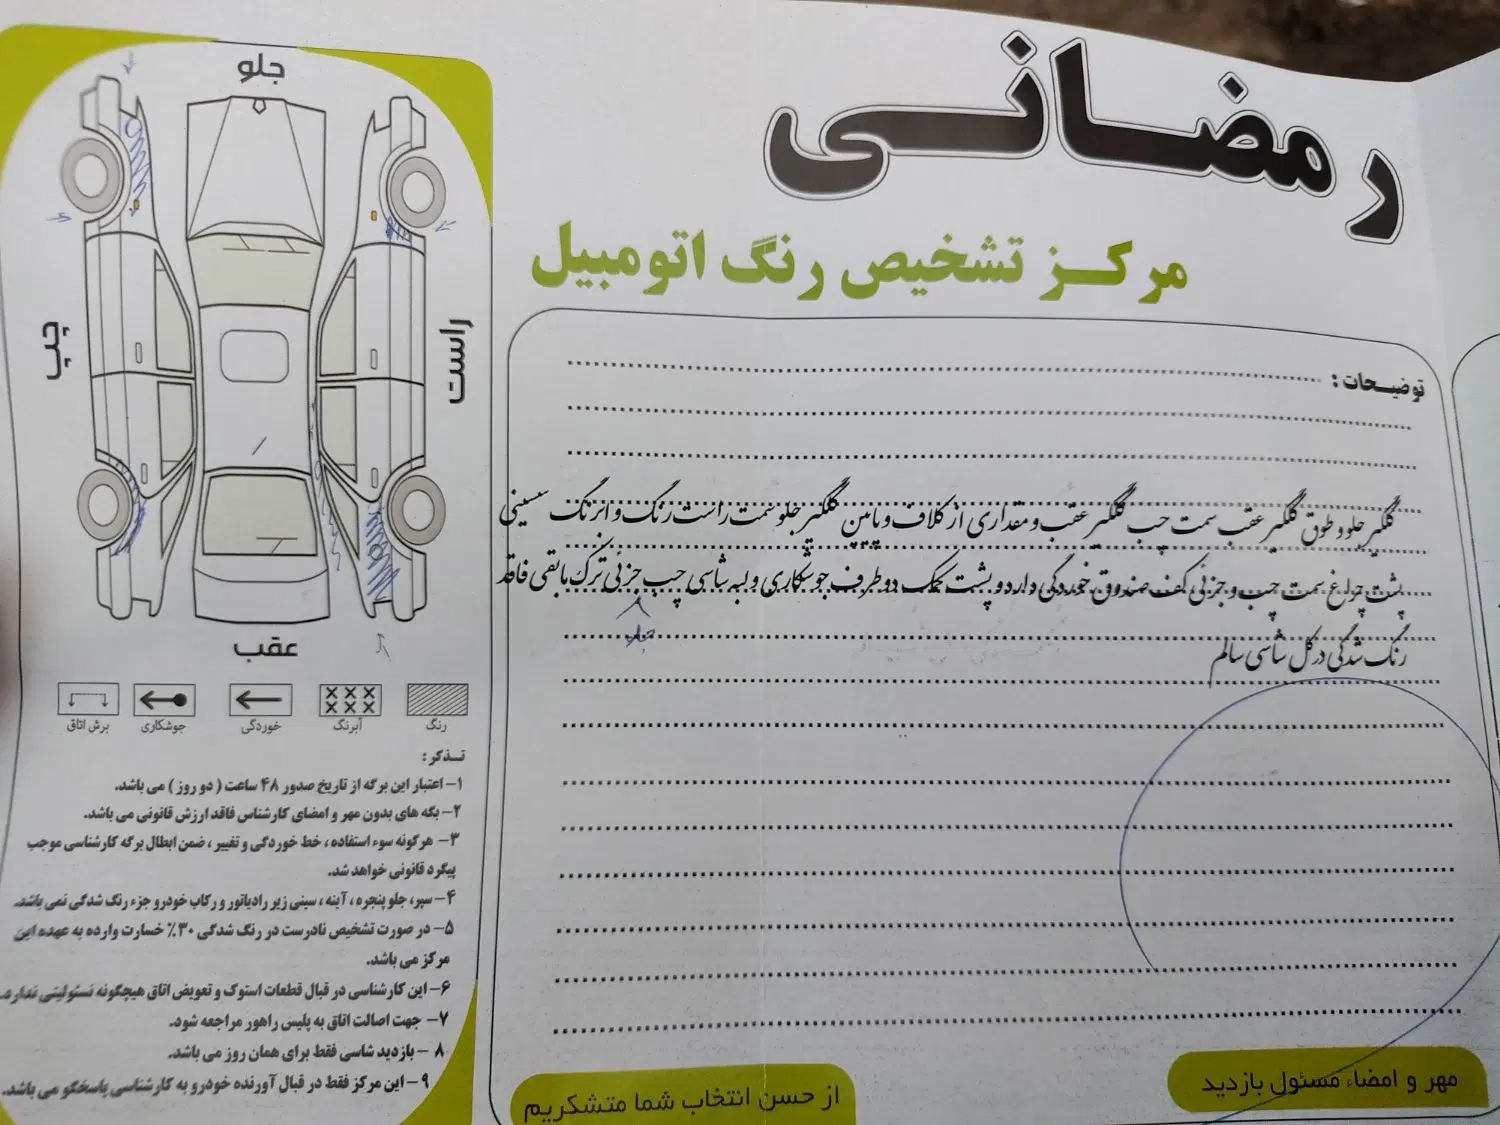 رمضانی
مرکز تشخیص رنگ اتومبیل
توضیحات :
گلگیر جلو و طوق گلگیر عقب سمت چپ گلگیر عقب و مقداری از کلاف و پایین گلگیر جلو سمت راست رنگ و ابرنگ سینی
پشت چراغ سمت چپ و جزئی کف صندوق خوردگی دارد و پشت کمک دو طرف جوشکاری و لبه شاسی چپ جزئی ترک مابقی فاقد
رنگ شدگی در کل شاسی سالم
مهر و امضاء مسئول بازدید
از حسن انتخاب شما متشکریم
جلو
چپ
راست
عقب
رنگ
آبرنگ
خوردگی
جوشکاری
برش اتاق
تـذکر :
۱- اعتبار این برگه از تاریخ صدور ۴۸ ساعت ( دو روز ) می باشد.
۲- بگه های بدون مهر و امضای کارشناس فاقد ارزش قانونی می باشد.
۳- هرگونه سوء استفاده ، خط خوردگی و تغییر ، ضمن ابطال برگه کارشناسی موجب
پیگرد قانونی خواهد شد.
۴- سپر، جلو پنجره ، آینه ، سینی زیر رادیاتور و رکاب خودرو جزء رنگ شدگی نمی باشد.
۵- در صورت تشخیص نادرست در رنگ شدگی ۳۰٪ خسارت وارده به عهده این
مرکز می باشد.
۶- این کارشناسی در قبال قطعات استوک و تعویض اتاق هیچگونه مسئولیتی ندارد.
۷- جهت اصالت اتاق به پلیس راهور مراجعه شود.
۸ - بازدید شاسی فقط برای همان روز می باشد.
۹- این مرکز فقط در قبال آورنده خودرو به کارشناسی پاسخگو می باشد.